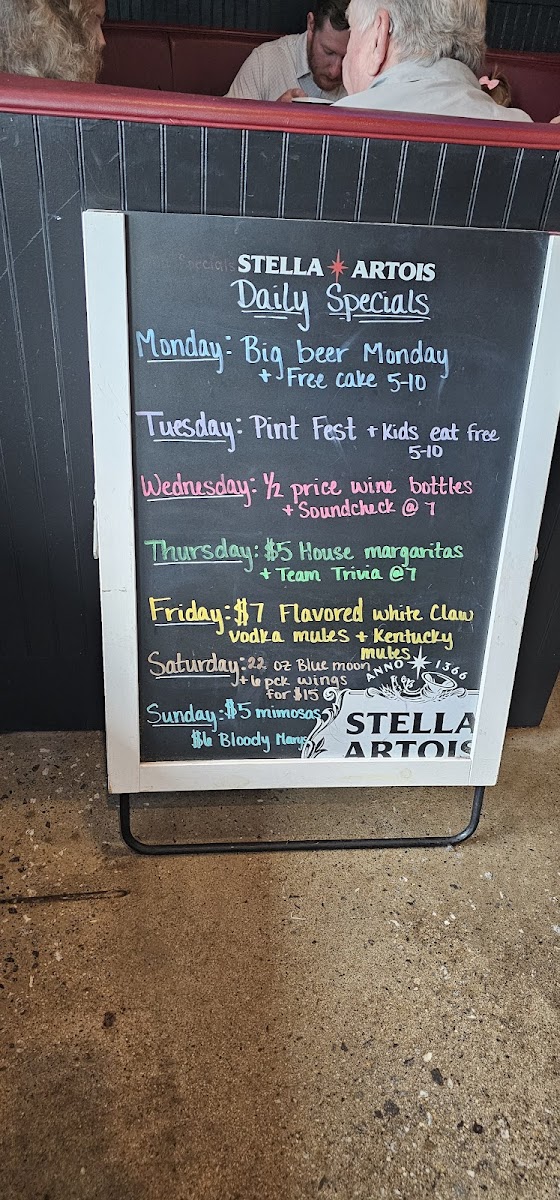 Specials STELLA ARTOIS
Daily Specials
Monday: Big beer Monday
+ Free cake 5-10
Tuesday: Pint Fest + Kids eat free
5-10
Wednesday: 1/2 price wine bottles
+ Soundcheck @ 7
Thursday: $5 House margaritas
+ Team Trivia @7
Friday: $7 Flavored white Claw
vodka mules + Kentucky
mules
Saturday: 22 oz Blue moon
+ 6 pck wings
for $15
ANNO 1366
Sunday: $5 mimosas
$6 Bloody Marys
STELLA
ARTOIS